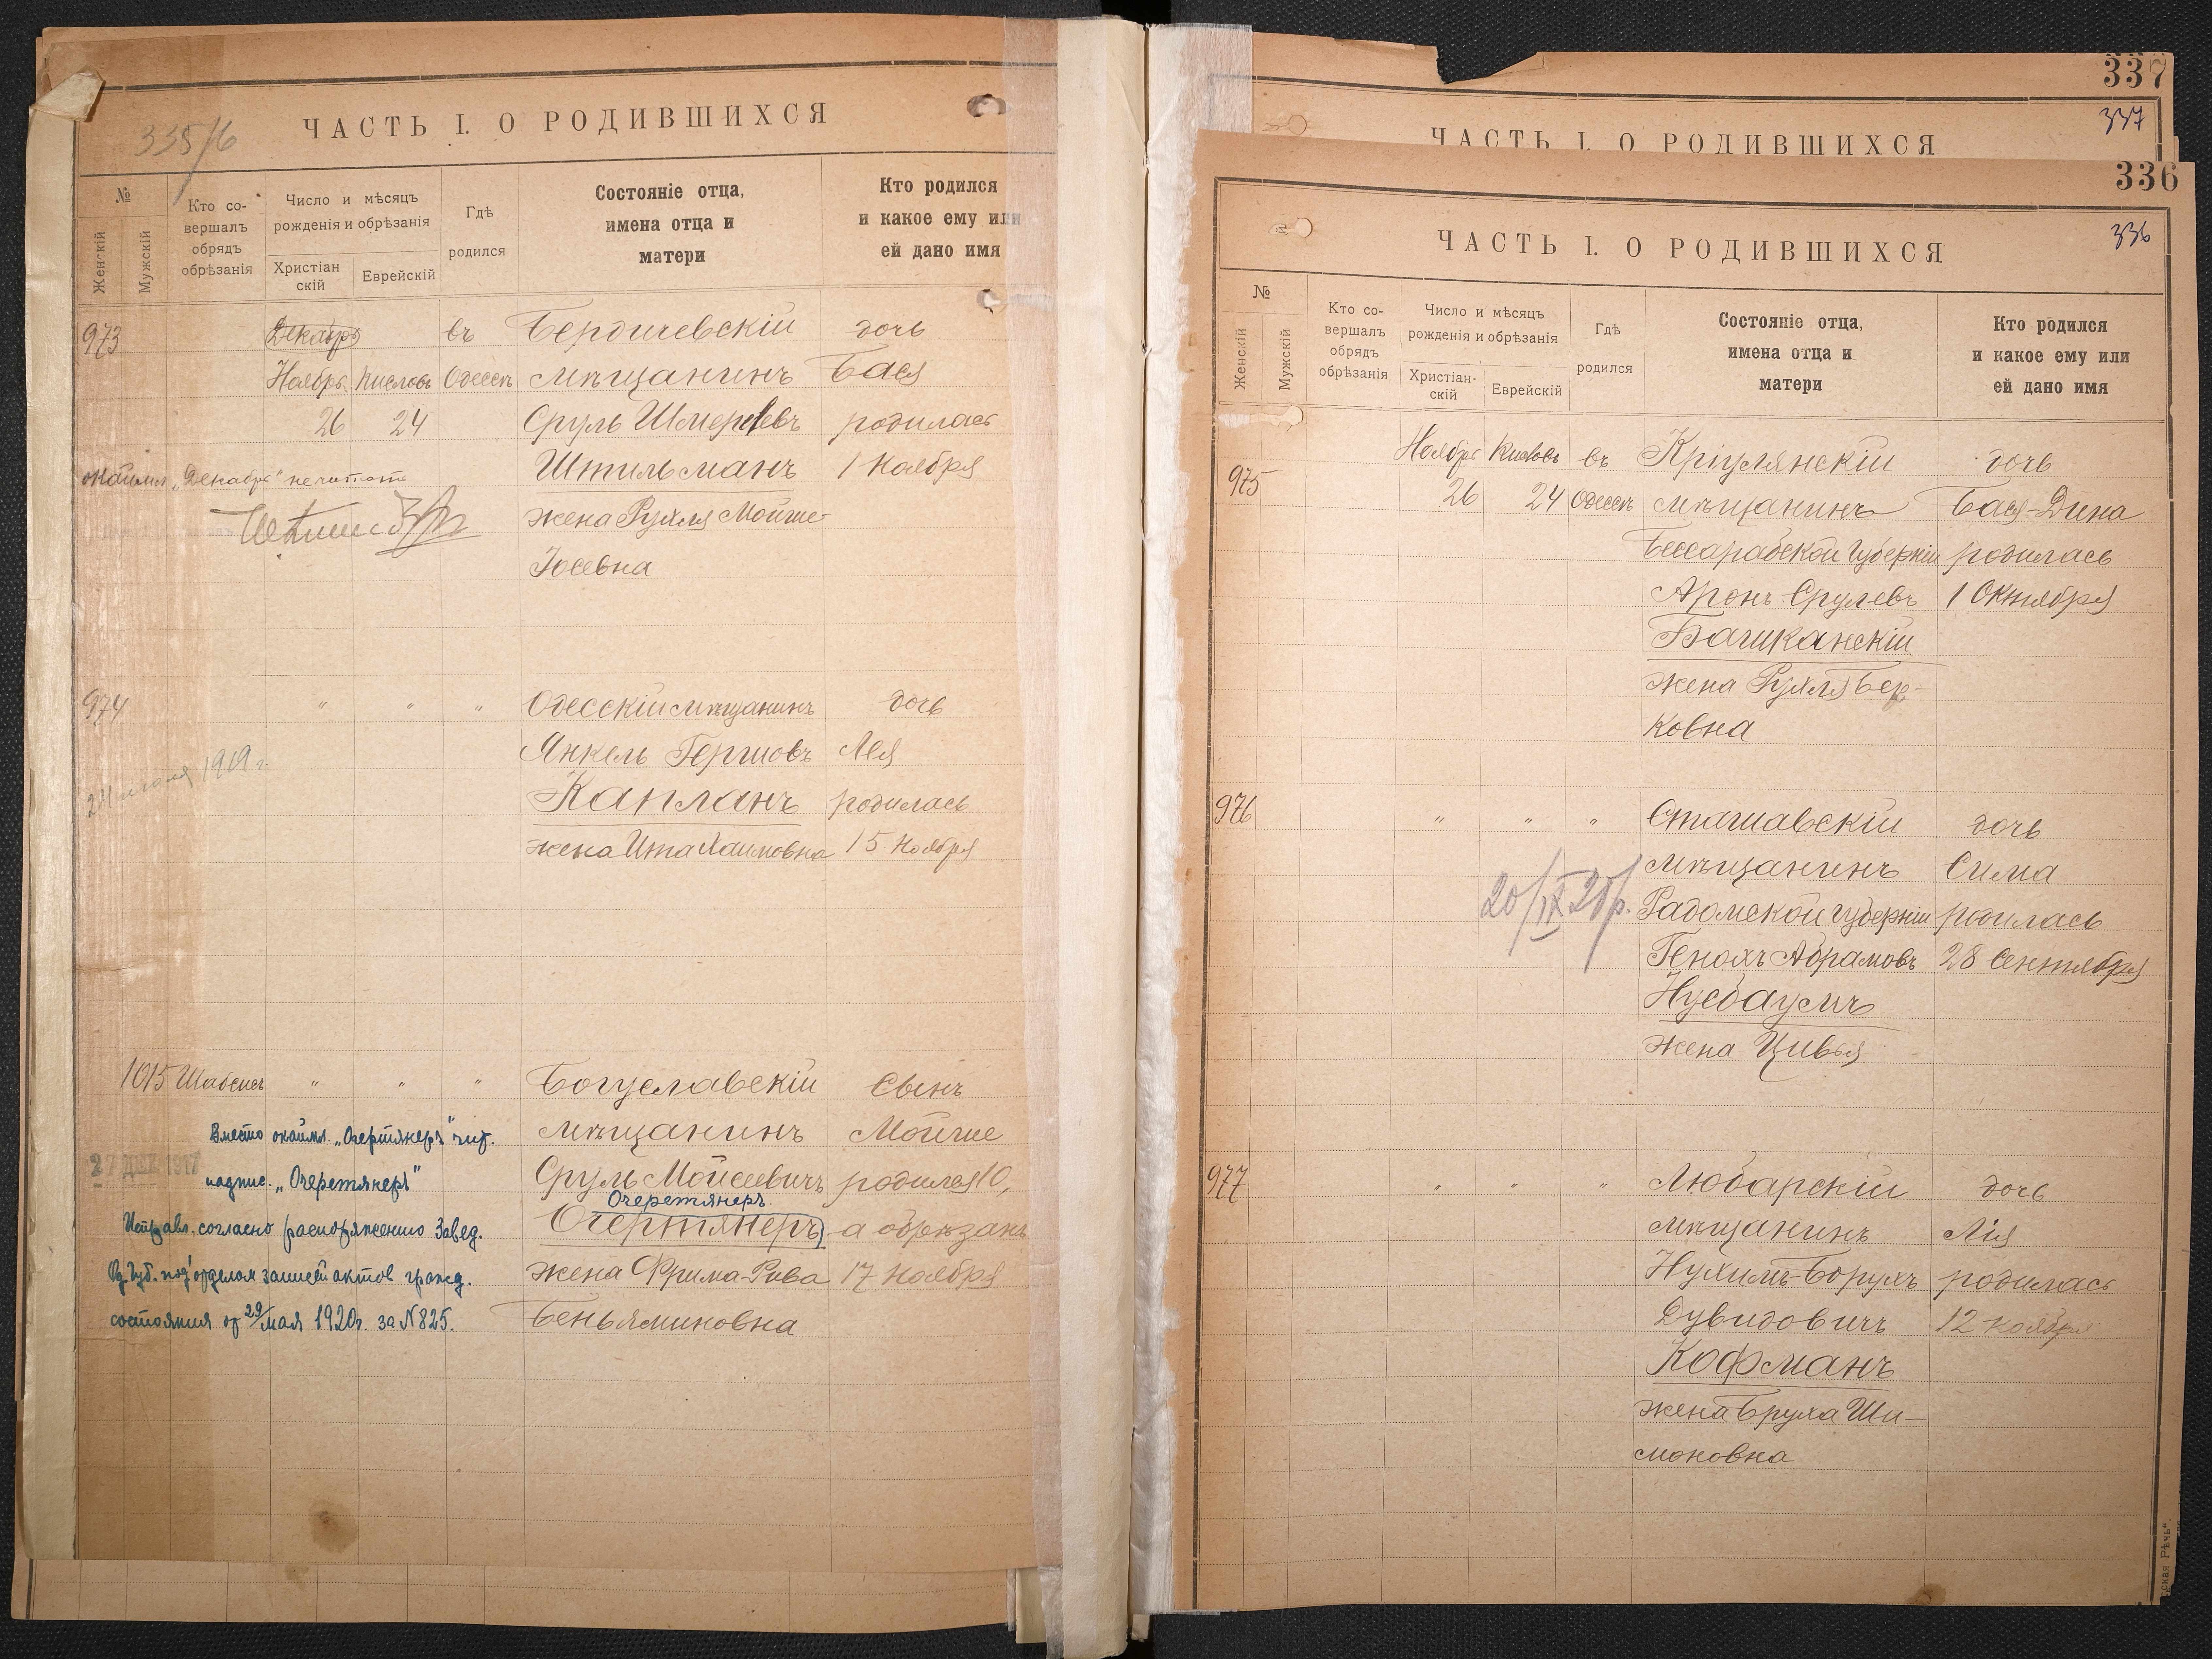 335/6
ЧАСТЬ I. О РОДИВШИХСЯ
№
Женскій
Мужскій
Кто со-
вершалъ
обрядъ
обрѣзанія
Число и мѣсяцъ
рожденія и обрѣзанія
Христіан
скій
Еврейскій
Гдѣ
родился
Состояніе отца,
имена отца и
матери
Кто родился
и какое ему или
ей дано имя
973 Декабрь въ Бердичевскій дочь
Ноябрь Кислевъ Одессѣ мѣщанинъ Бася
26 24 Сруль Шмерлевъ родилась
окаймл. „Декабрь" не читать Штильманъ 1 Ноября
жена Рухля Мойше-
Іосевна
974 " " " Одесскій мѣщанинъ дочь
Янкель Гершовъ Лея
1919 г.
Капланъ родилась
жена Ита Хаимовна 15 Ноября
1015 Шабсисъ " " " Богуславскій Сынъ
Вместо окаймл. „Очертянеръ" чит. мѣщанинъ Мойше
27 ДЕК 1917
надпис. „Очеретянеръ" Сруль Мойсеевичъ родился 10,
Очеретянеръ
Исправл. согласно распоряжению Завед. Очертянеръ а обрѣзанъ
Од. Губ. под'отделом записей актов гражд. жена Фрима-Рива 17 Ноября
состояния от 29/мая 1920г. за №825. Беньяминовна
337
337
ЧАСТЬ I. О РОДИВШИХСЯ
336
336
ЧАСТЬ I. О РОДИВШИХСЯ
№
Женскій
Мужскій
Кто со-
вершалъ
обрядъ
обрѣзанія
Число и мѣсяцъ
рожденія и обрѣзанія
Христіан-
скій
Еврейскій
Гдѣ
родился
Состояніе отца,
имена отца и
матери
Кто родился
и какое ему или
ей дано имя
975 Ноябрь Кислевъ въ Кріулянскій дочь
26 24 Одессѣ мѣщанинъ Бася-Дина
Бессарабской Губерніи родилась
Аронъ Срулевъ 1 Октября
Башканскій
жена Рухля Бер-
ковна
976 " " " Сташавскій дочь
мѣщанинъ Сима
20/IX 20 г. Радомской губерніи родилась
Генохъ Абрамовъ 28 Сентября
Нусбаумъ
жена Цивья
977 " " " Любарскій дочь
мѣщанинъ Лія
Нухимъ-Борухъ родилась
Дувидовичъ 12 ноября
Кофманъ
жена Бруха Ши-
моновна